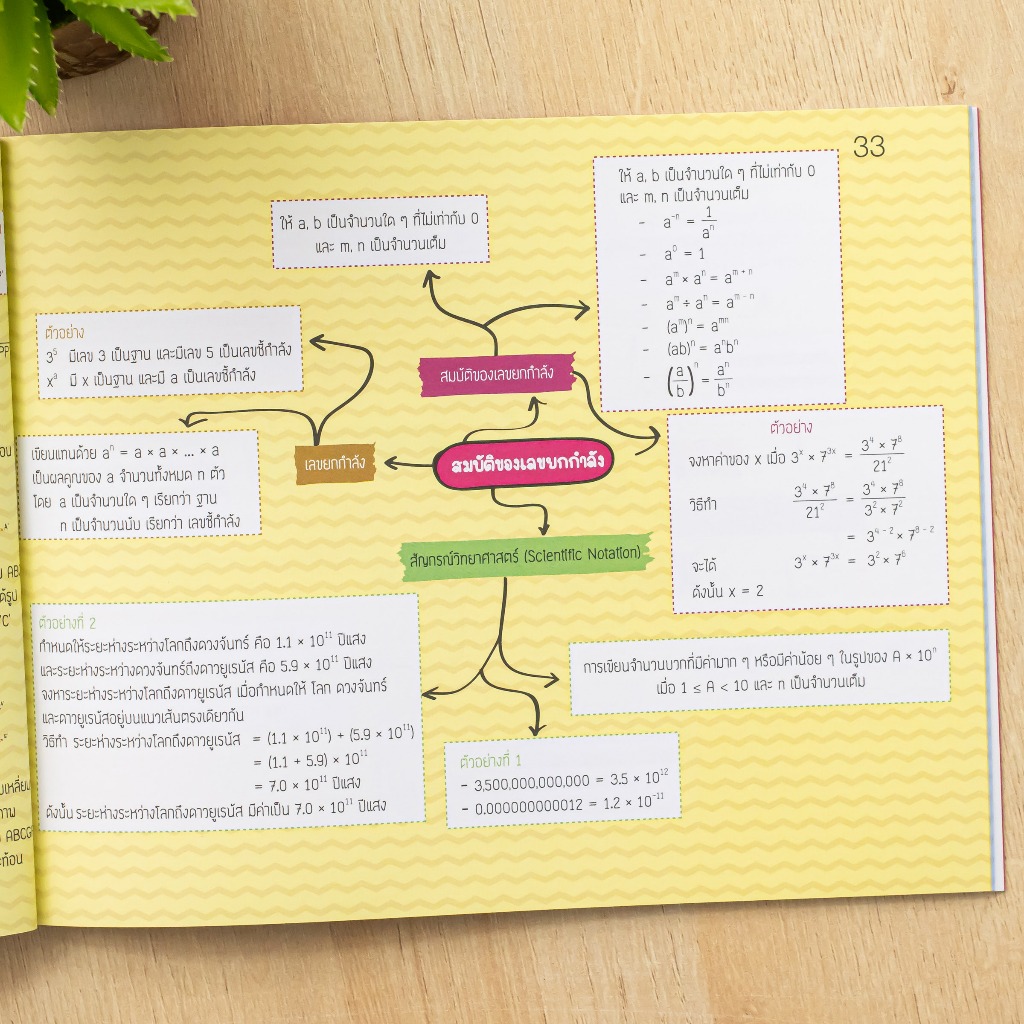 33
ให้ a, b เป็นจำนวนใด ๆ ที่ไม่เท่ากับ 0
และ m, n เป็นจำนวนเต็ม
ให้ a, b เป็นจำนวนใด ๆ ที่ไม่เท่ากับ 0
และ m, n เป็นจำนวนเต็ม
- a⁻ⁿ = 1/aⁿ
- a⁰ = 1
- aᵐ × aⁿ = aᵐ⁺ⁿ
- aᵐ ÷ aⁿ = aᵐ⁻ⁿ
- (aᵐ)ⁿ = aᵐⁿ
- (ab)ⁿ = aⁿbⁿ
- (a/b)ⁿ = aⁿ/bⁿ
ตัวอย่าง
3⁵ มีเลข 3 เป็นฐาน และมีเลข 5 เป็นเลขชี้กำลัง
xᵃ มี x เป็นฐาน และมี a เป็นเลขชี้กำลัง
สมบัติของเลขยกกำลัง
เขียนแทนด้วย aⁿ = a × a × ... × a
เป็นผลคูณของ a จำนวนทั้งหมด n ตัว
โดย a เป็นจำนวนใด ๆ เรียกว่า ฐาน
n เป็นจำนวนนับ เรียกว่า เลขชี้กำลัง
เลขยกกำลัง
สมบัติของเลขยกกำลัง
ตัวอย่าง
จงหาค่าของ x เมื่อ 3ˣ × 7³ˣ = (3⁴ × 7⁸)/21²
วิธีทำ (3⁴ × 7⁸)/21² = (3⁴ × 7⁸)/(3² × 7²)
= 3⁴⁻² × 7⁸⁻²
จะได้ 3ˣ × 7³ˣ = 3² × 7⁶
ดังนั้น x = 2
สัญกรณ์วิทยาศาสตร์ (Scientific Notation)
ตัวอย่างที่ 2
กำหนดให้ระยะห่างระหว่างโลกถึงดวงจันทร์ คือ 1.1 × 10¹¹ ปีแสง
และระยะห่างระหว่างดวงจันทร์ถึงดาวยูเรนัส คือ 5.9 × 10¹¹ ปีแสง
จงหาระยะห่างระหว่างโลกถึงดาวยูเรนัส เมื่อกำหนดให้ โลก ดวงจันทร์
และดาวยูเรนัสอยู่บนแนวเส้นตรงเดียวกัน
วิธีทำ ระยะห่างระหว่างโลกถึงดาวยูเรนัส = (1.1 × 10¹¹) + (5.9 × 10¹¹)
= (1.1 + 5.9) × 10¹¹
= 7.0 × 10¹¹ ปีแสง
ดังนั้น ระยะห่างระหว่างโลกถึงดาวยูเรนัส มีค่าเป็น 7.0 × 10¹¹ ปีแสง
การเขียนจำนวนบวกที่มีค่ามาก ๆ หรือมีค่าน้อย ๆ ในรูปของ A × 10ⁿ
เมื่อ 1 ≤ A < 10 และ n เป็นจำนวนเต็ม
ตัวอย่างที่ 1
- 3,500,000,000,000 = 3.5 × 10¹²
- 0.000000000012 = 1.2 × 10⁻¹¹